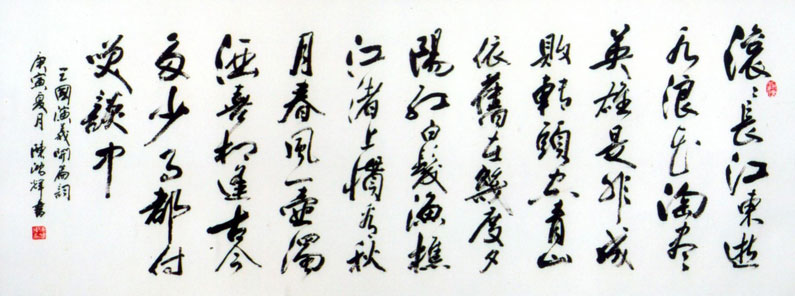 滾〻長江東逝
水浪花淘盡
英雄是非成
敗轉頭空青山
依舊在幾度夕
陽紅白髮漁樵
江渚上慣看秋
月春風一壺濁
酒喜相逢古今
多少事都付
笑談中
三國演義開篇詞
庚寅夏月 陳鴻輝書